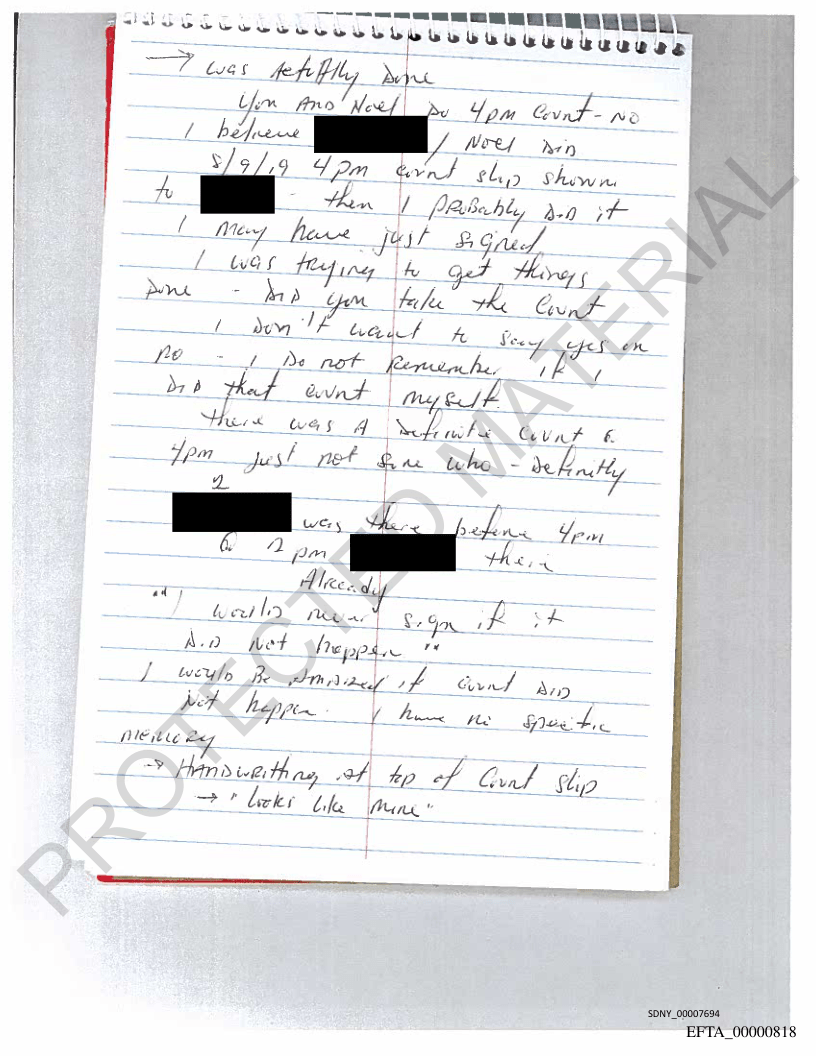 → was Actually Done
You And Noel Do 4pm Count - No
I believe / Noel DiD
8/9/19 4pm count slip shown
to - then I PRoBably DiD it
I may have just signed
I was trying to get things
Done - DiD you take the Count
I Don't want to say yes or
No - I Do not Remember if I
DiD that count myself.
there was A Definite Count @
4pm just not sure who - Definitly
2
was there before 4pm
@ 2 pm there
Already
"I would never sign if it
DiD Not happen"
I would Be Amazed if count DiD
Not happen. I have no specific
memory
→ HANDWRitting at top of Count Slip
→ "looks like mine"
PROTECTED MATERIAL
SDNY_00007694
EFTA_00000818